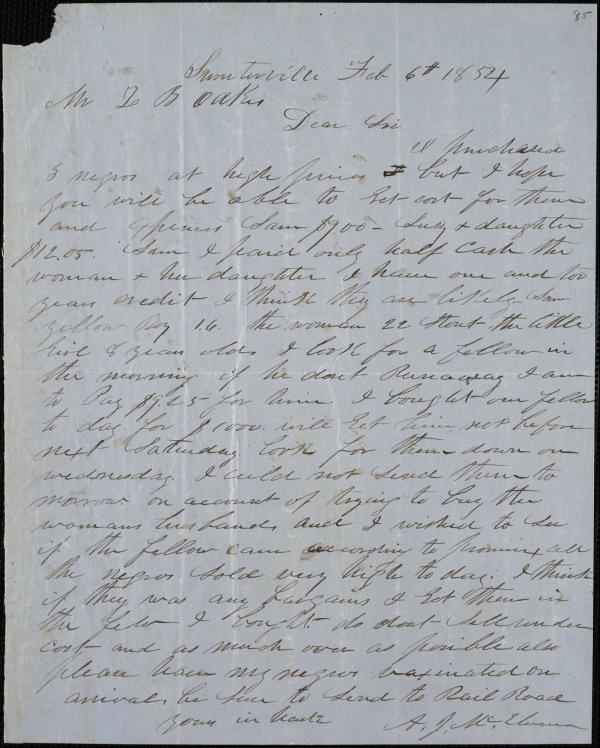 85
Sumterville Feb 6th 1854
Mr Z B Oakes
Dear Sir
I purchased
3 negros at high prices but I hope
you will be able to Get cost for them
and Sam $900 - Lucy & daughter
$12.05. Sam I paid only half Cash the
woman & her daughter I have one and too
years credit I think they are likely Sam
yellow Boy 16. the woman 22 Stout the little
Girl 8 years old I look for a fellow in
the morning if he dont Runaway I am
to Pay for him I bought one fellow
to day for $1000. will Get him not before
next Saturday look for them down on
wednesday I Could not Send them to
morrow on account of trying to buy the
womans husband and I wished to See
if the fellow came according to promis all
the negros Sold very high to day. I think
if they was any bargains I Got them in
the few I bought do dont Sell under
cost and as much over as posible also
please have my negros vaxinated on
arrival be Sure to Send to Rail Road
yours in haste A. J. McElveen